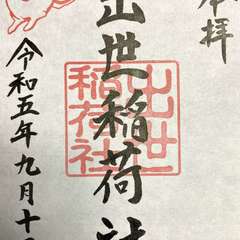 奉拝
出世稲荷社
出世
稲荷社
令和五年九月十